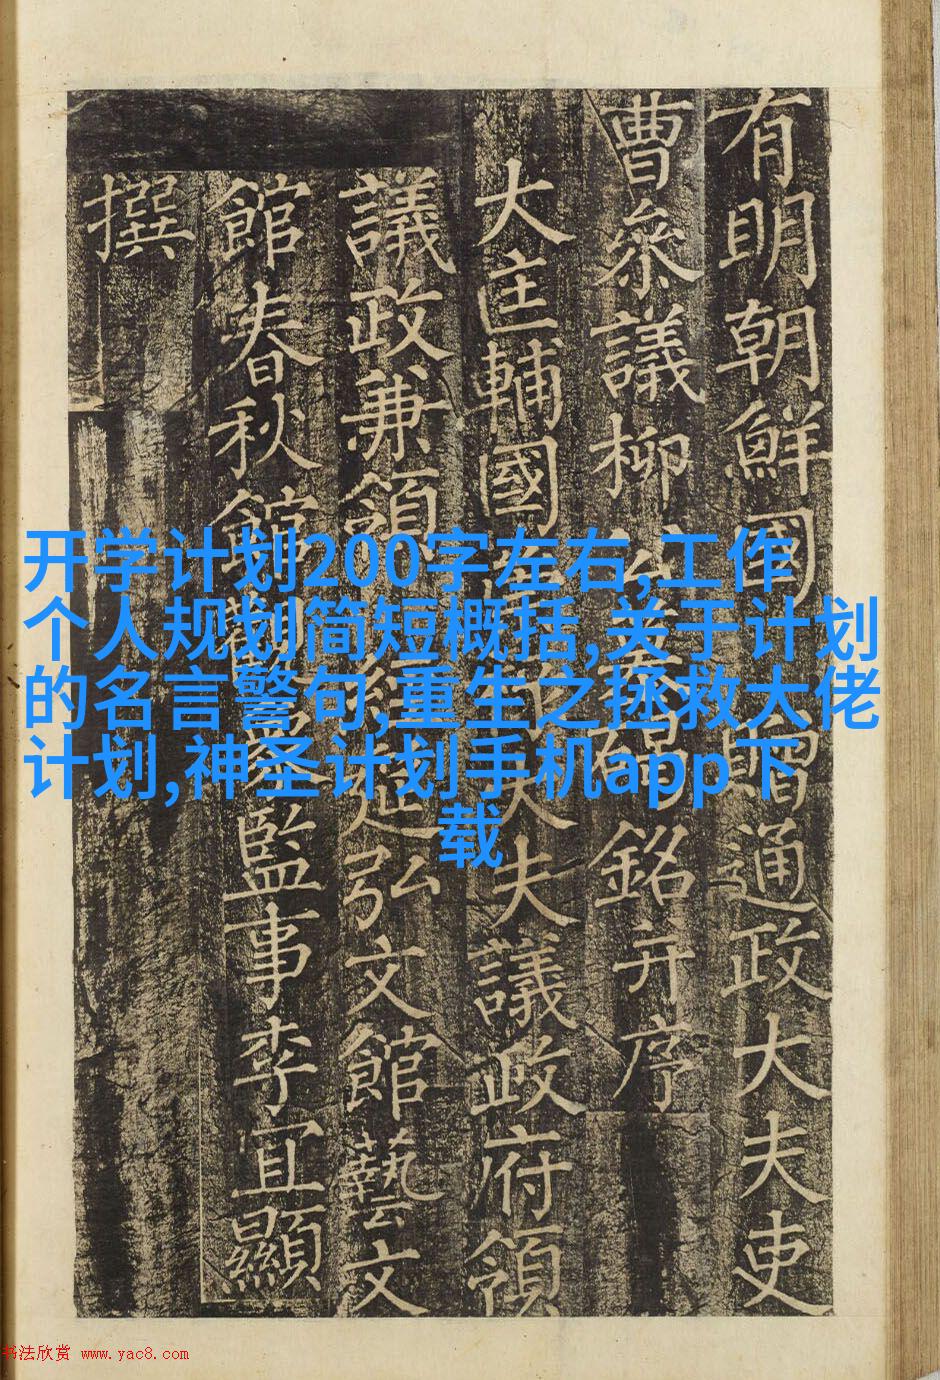 有明朝鮮國贈通政大夫吏
曹參議柳公墓碣銘并序
大匡輔國崇祿大夫議政府領
議政兼領經筵弘文館藝文
館春秋館觀象監事李宜顯
撰
开学计划200字左右,工作
个人规划简短概括,关于计划
的名言警句,重生之拯救大佬
计划,神圣计划手机app下
载
书法欣赏 www.yac8.com